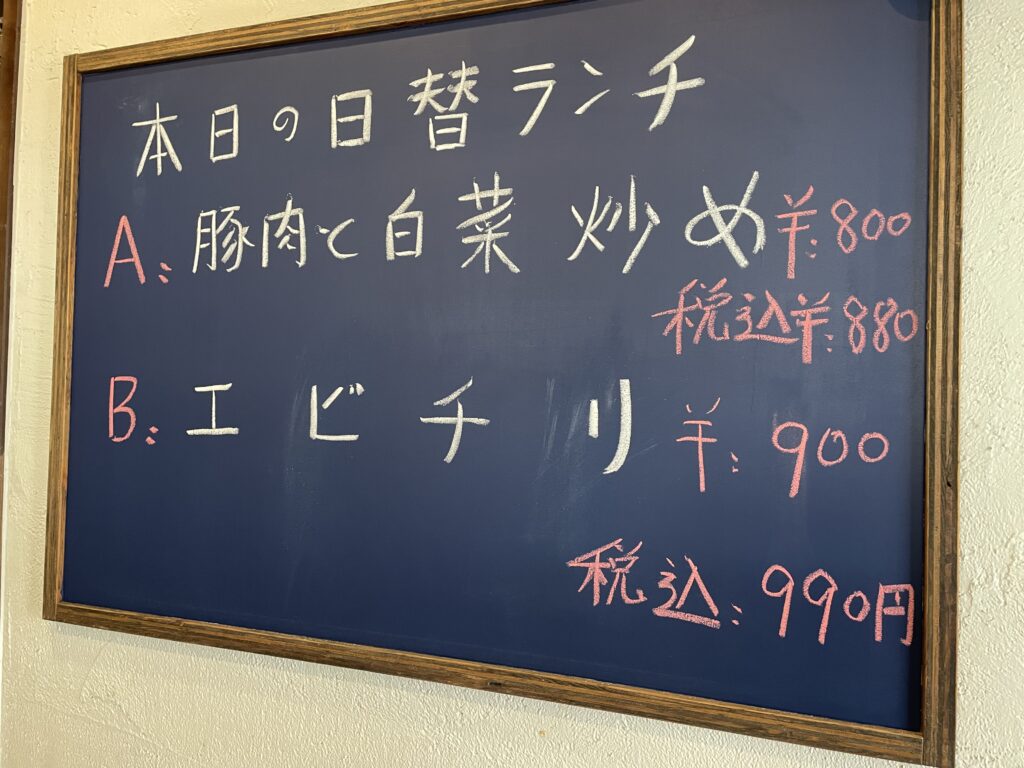 本日の日替ランチ
A: 豚肉と白菜 炒め ¥:800
税込¥:880
B: エビチリ ¥: 900
税込: 990円